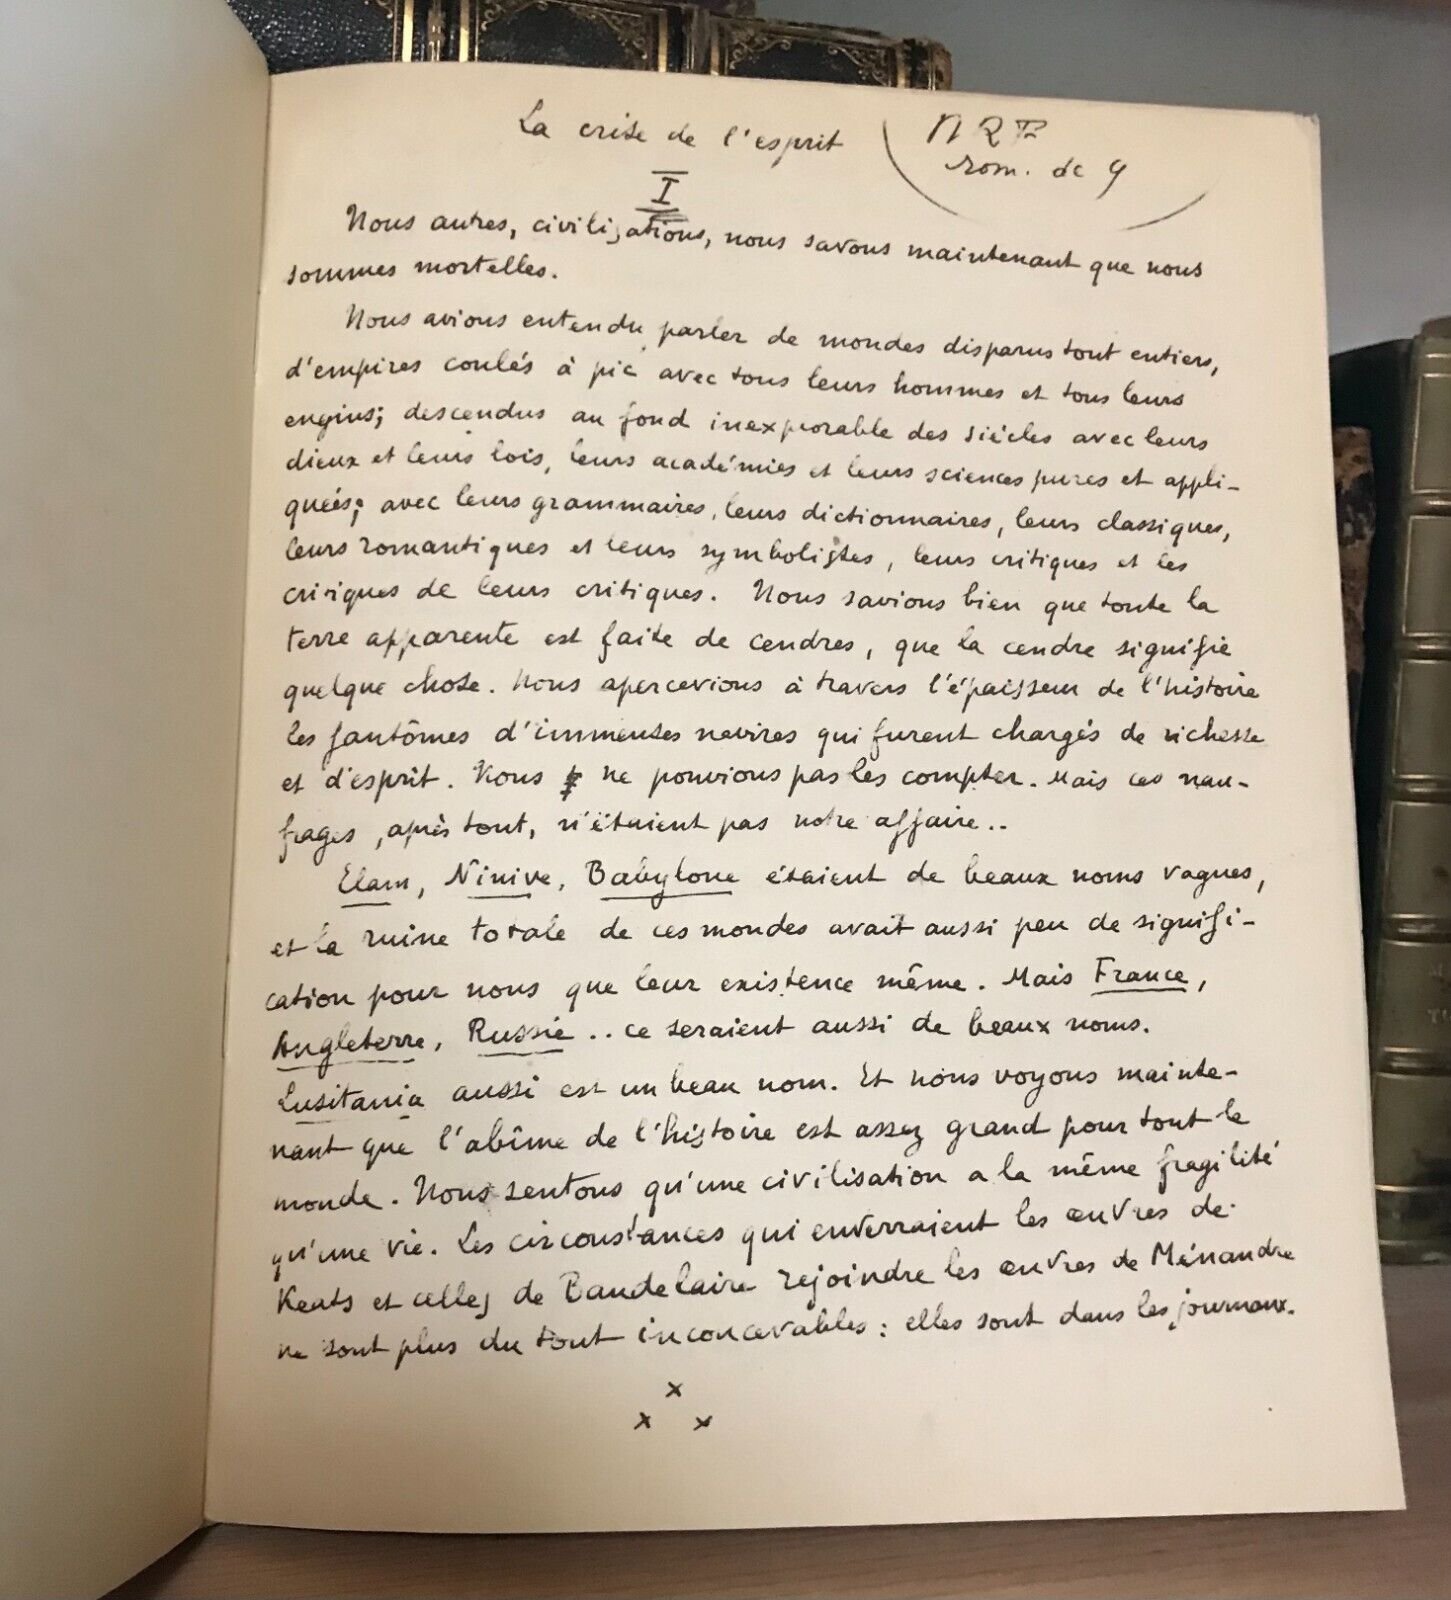 La crise de l'esprit
NRF
rom. de 9
I
Nous autres, civilisations, nous savons maintenant que nous
sommes mortelles.
Nous avions entendu parler de mondes disparus tout entiers,
d'empires coulés à pic avec tous leurs hommes et tous leurs
engins; descendus au fond inexplorable des siècles avec leurs
dieux et leurs lois, leurs académies et leurs sciences pures et appli-
quées; avec leurs grammaires, leurs dictionnaires, leurs classiques,
leurs romantiques et leurs symbolistes, leurs critiques et les
critiques de leurs critiques. Nous savions bien que toute la
terre apparente est faite de cendres, que la cendre signifie
quelque chose. Nous apercevions à travers l'épaisseur de l'histoire
les fantômes d'immenses navires qui furent chargés de richesse
et d'esprit. Nous ne pouvions pas les compter. Mais ces nau-
frages, après tout, n'étaient pas notre affaire..
Elam, Ninive, Babylone étaient de beaux noms vagues,
et la ruine totale de ces mondes avait aussi peu de signifi-
cation pour nous que leur existence même. Mais France,
Angleterre, Russie .. ce seraient aussi de beaux noms.
Lusitania aussi est un beau nom. Et nous voyons mainte-
nant que l'abîme de l'histoire est assez grand pour tout le
monde. Nous sentons qu'une civilisation a la même fragilité
qu'une vie. Les circonstances qui enverraient les œuvres de
Keats et celles de Baudelaire rejoindre les œuvres de Ménandre
ne sont plus du tout inconcevables : elles sont dans les journaux.
x
x x